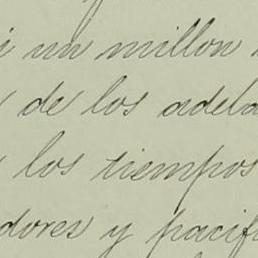 i un millon
de los adela
los tiempos
dores y pacifi